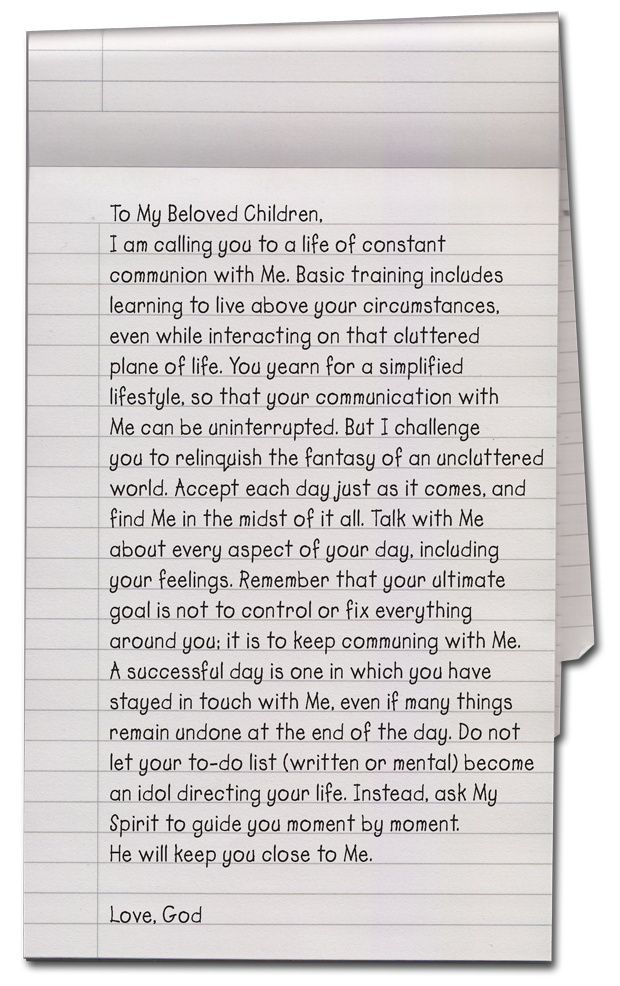 To My Beloved Children,
I am calling you to a life of constant
communion with Me. Basic training includes
learning to live above your circumstances,
even while interacting on that cluttered
plane of life. You yearn for a simplified
lifestyle, so that your communication with
Me can be uninterrupted. But I challenge
you to relinquish the fantasy of an uncluttered
world. Accept each day just as it comes, and
find Me in the midst of it all. Talk with Me
about every aspect of your day, including
your feelings. Remember that your ultimate
goal is not to control or fix everything
around you; it is to keep communing with Me.
A successful day is one in which you have
stayed in touch with Me, even if many things
remain undone at the end of the day. Do not
let your to-do list (written or mental) become
an idol directing your life. Instead, ask My
Spirit to guide you moment by moment.
He will keep you close to Me.
Love, God